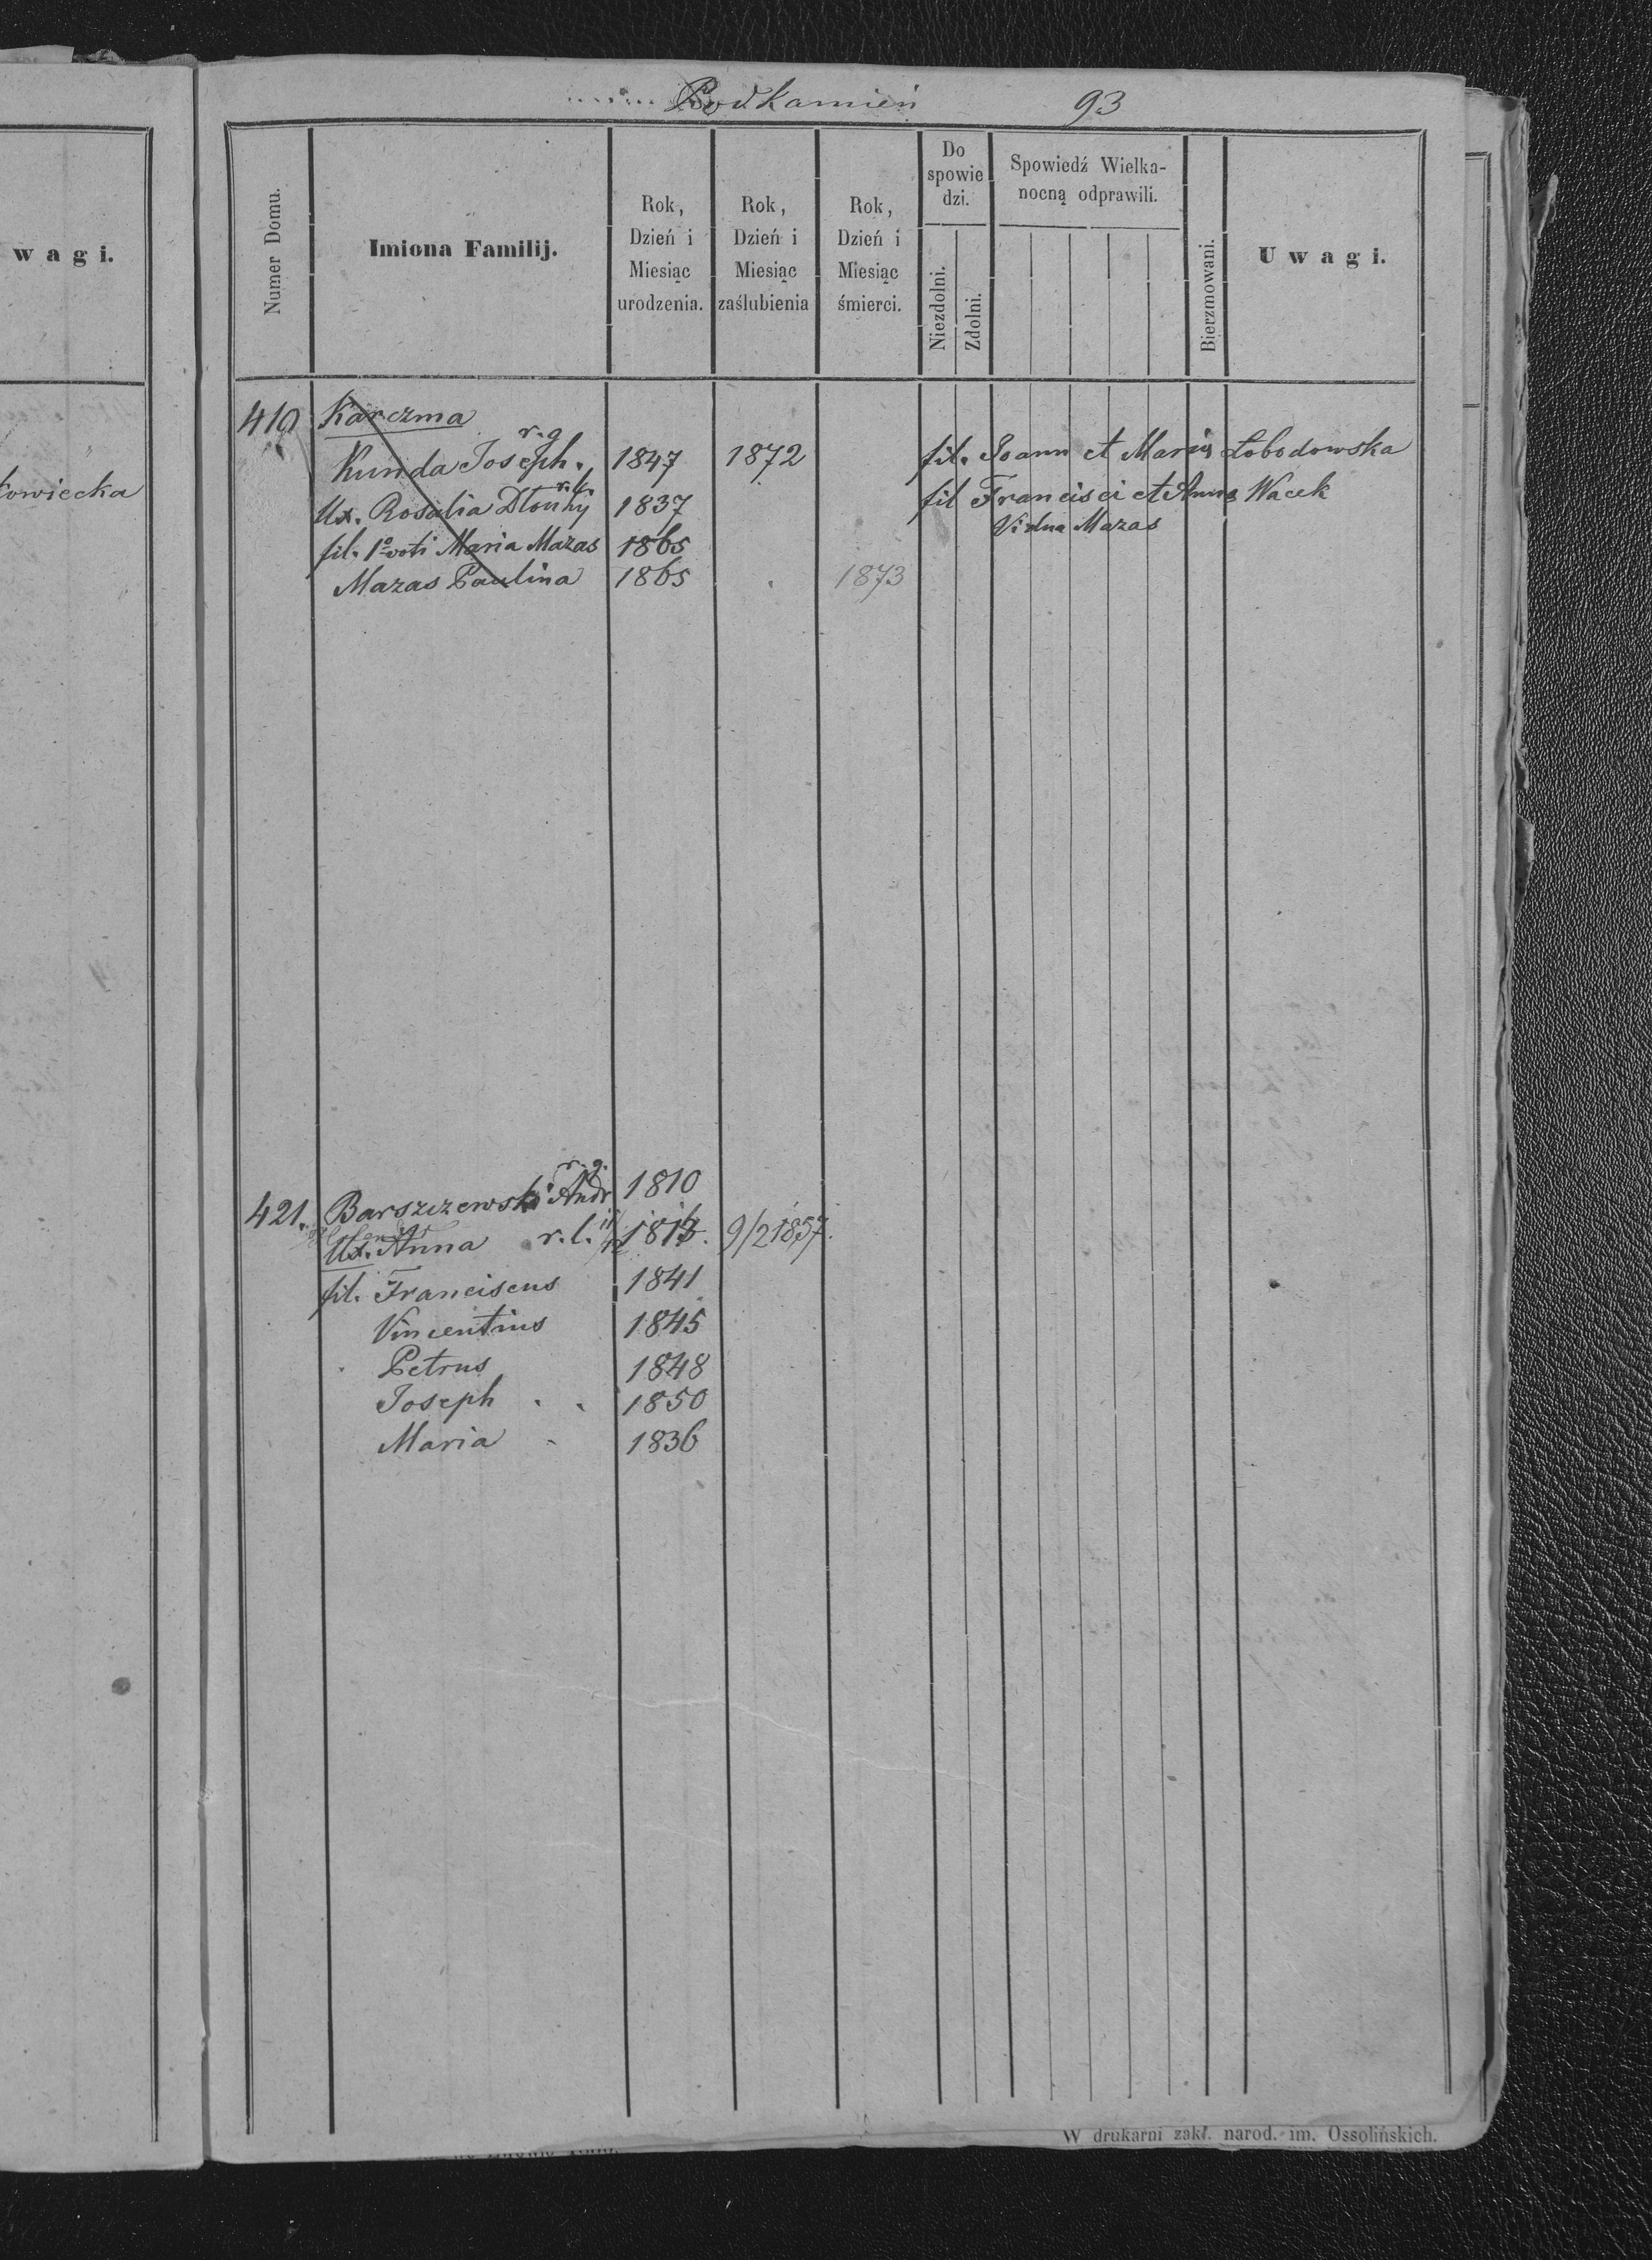 Podkamień 93
w a g i.
Numer Domu.
Imiona Familij.
Rok, Dzień i Miesiąc urodzenia.
Rok, Dzień i Miesiąc zaślubienia
Rok, Dzień i Miesiąc śmierci.
Do spowie dzi.
Niezdolni.
Zdolni.
Spowiedź Wielka-
nocną odprawili.
Bierzmowani.
U w a g i.
410 Karczma
r. g
Kunda Joseph. 1847 1872 fil. Joann et Maria Łobodowska
łowiecka
r. l.
Ux. Rosalia Dłouhy 1837 fil Francisci et Anna Wacek
Vidua Mazas
fil. 1º voti Maria Mazas 1865
Mazas Paulina 1865 1873
r. g.
421. Barszczewski Andr 1810
Ux. Anna r. l. 9/2 1857.
fil. Franciscus 1841
Vincentius 1845
Petrus 1848
Joseph 1850
Maria 1836
W drukarni zakł. narod. im. Ossolińskich.